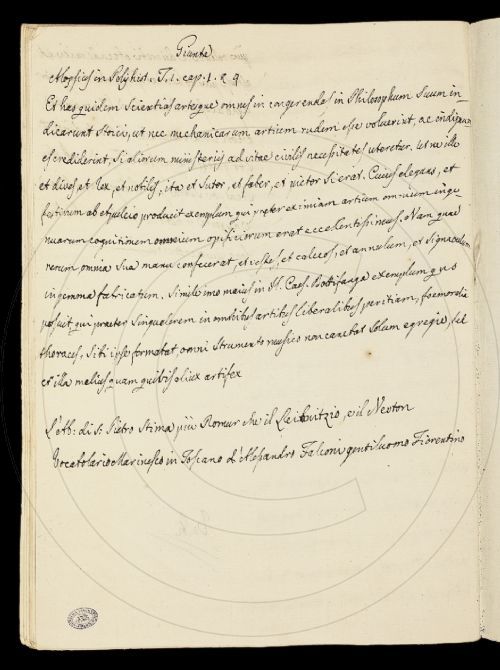 Giunte
Alopsius in Polyhist. T. 1. cap. 1. § 9
Et has quidem Scientias artesque omnes in congerendas in Philosophum Suum in-
dicarunt Stoici, ut nec mechanicarum artium rudem esse voluerint, ac indignum
esse crediderint, si aliorum ministeriis ad vitae civilis necessitates uteretur. ut ne ille
et dives et Rex, et nobilis, ita et Sutor, et faber, et pictor si erat. Cuius elegans, et
festivum ab et Apuleio producit exemplum qui praeter eximiam artium omnium inge-
nuarum cognitionem omnium opificiorum erat excellentissimus. Nam quae
rerum omnia sua manu confecerat, et vestes, et calceos, et annulum, et Signaculum
in gemma fabricatum. Simile imo maius in Jl. Caes. Bottifanga exemplum quo
qui praeter Singularem in omnibus artibus liberalibus peritiam, foemoralia
thoraces, sibi ipse formabat, omni Strumento musico non canebat Solum egregie, sed
et illa melius, quam quibus alius artifex
L'Ab: di S: Pietro Stima più Romur che il Leibnitzio, e il Newton
Vocabolario Marinesco in Toscano di Alessandro Falconi gentiluomo Fiorentino